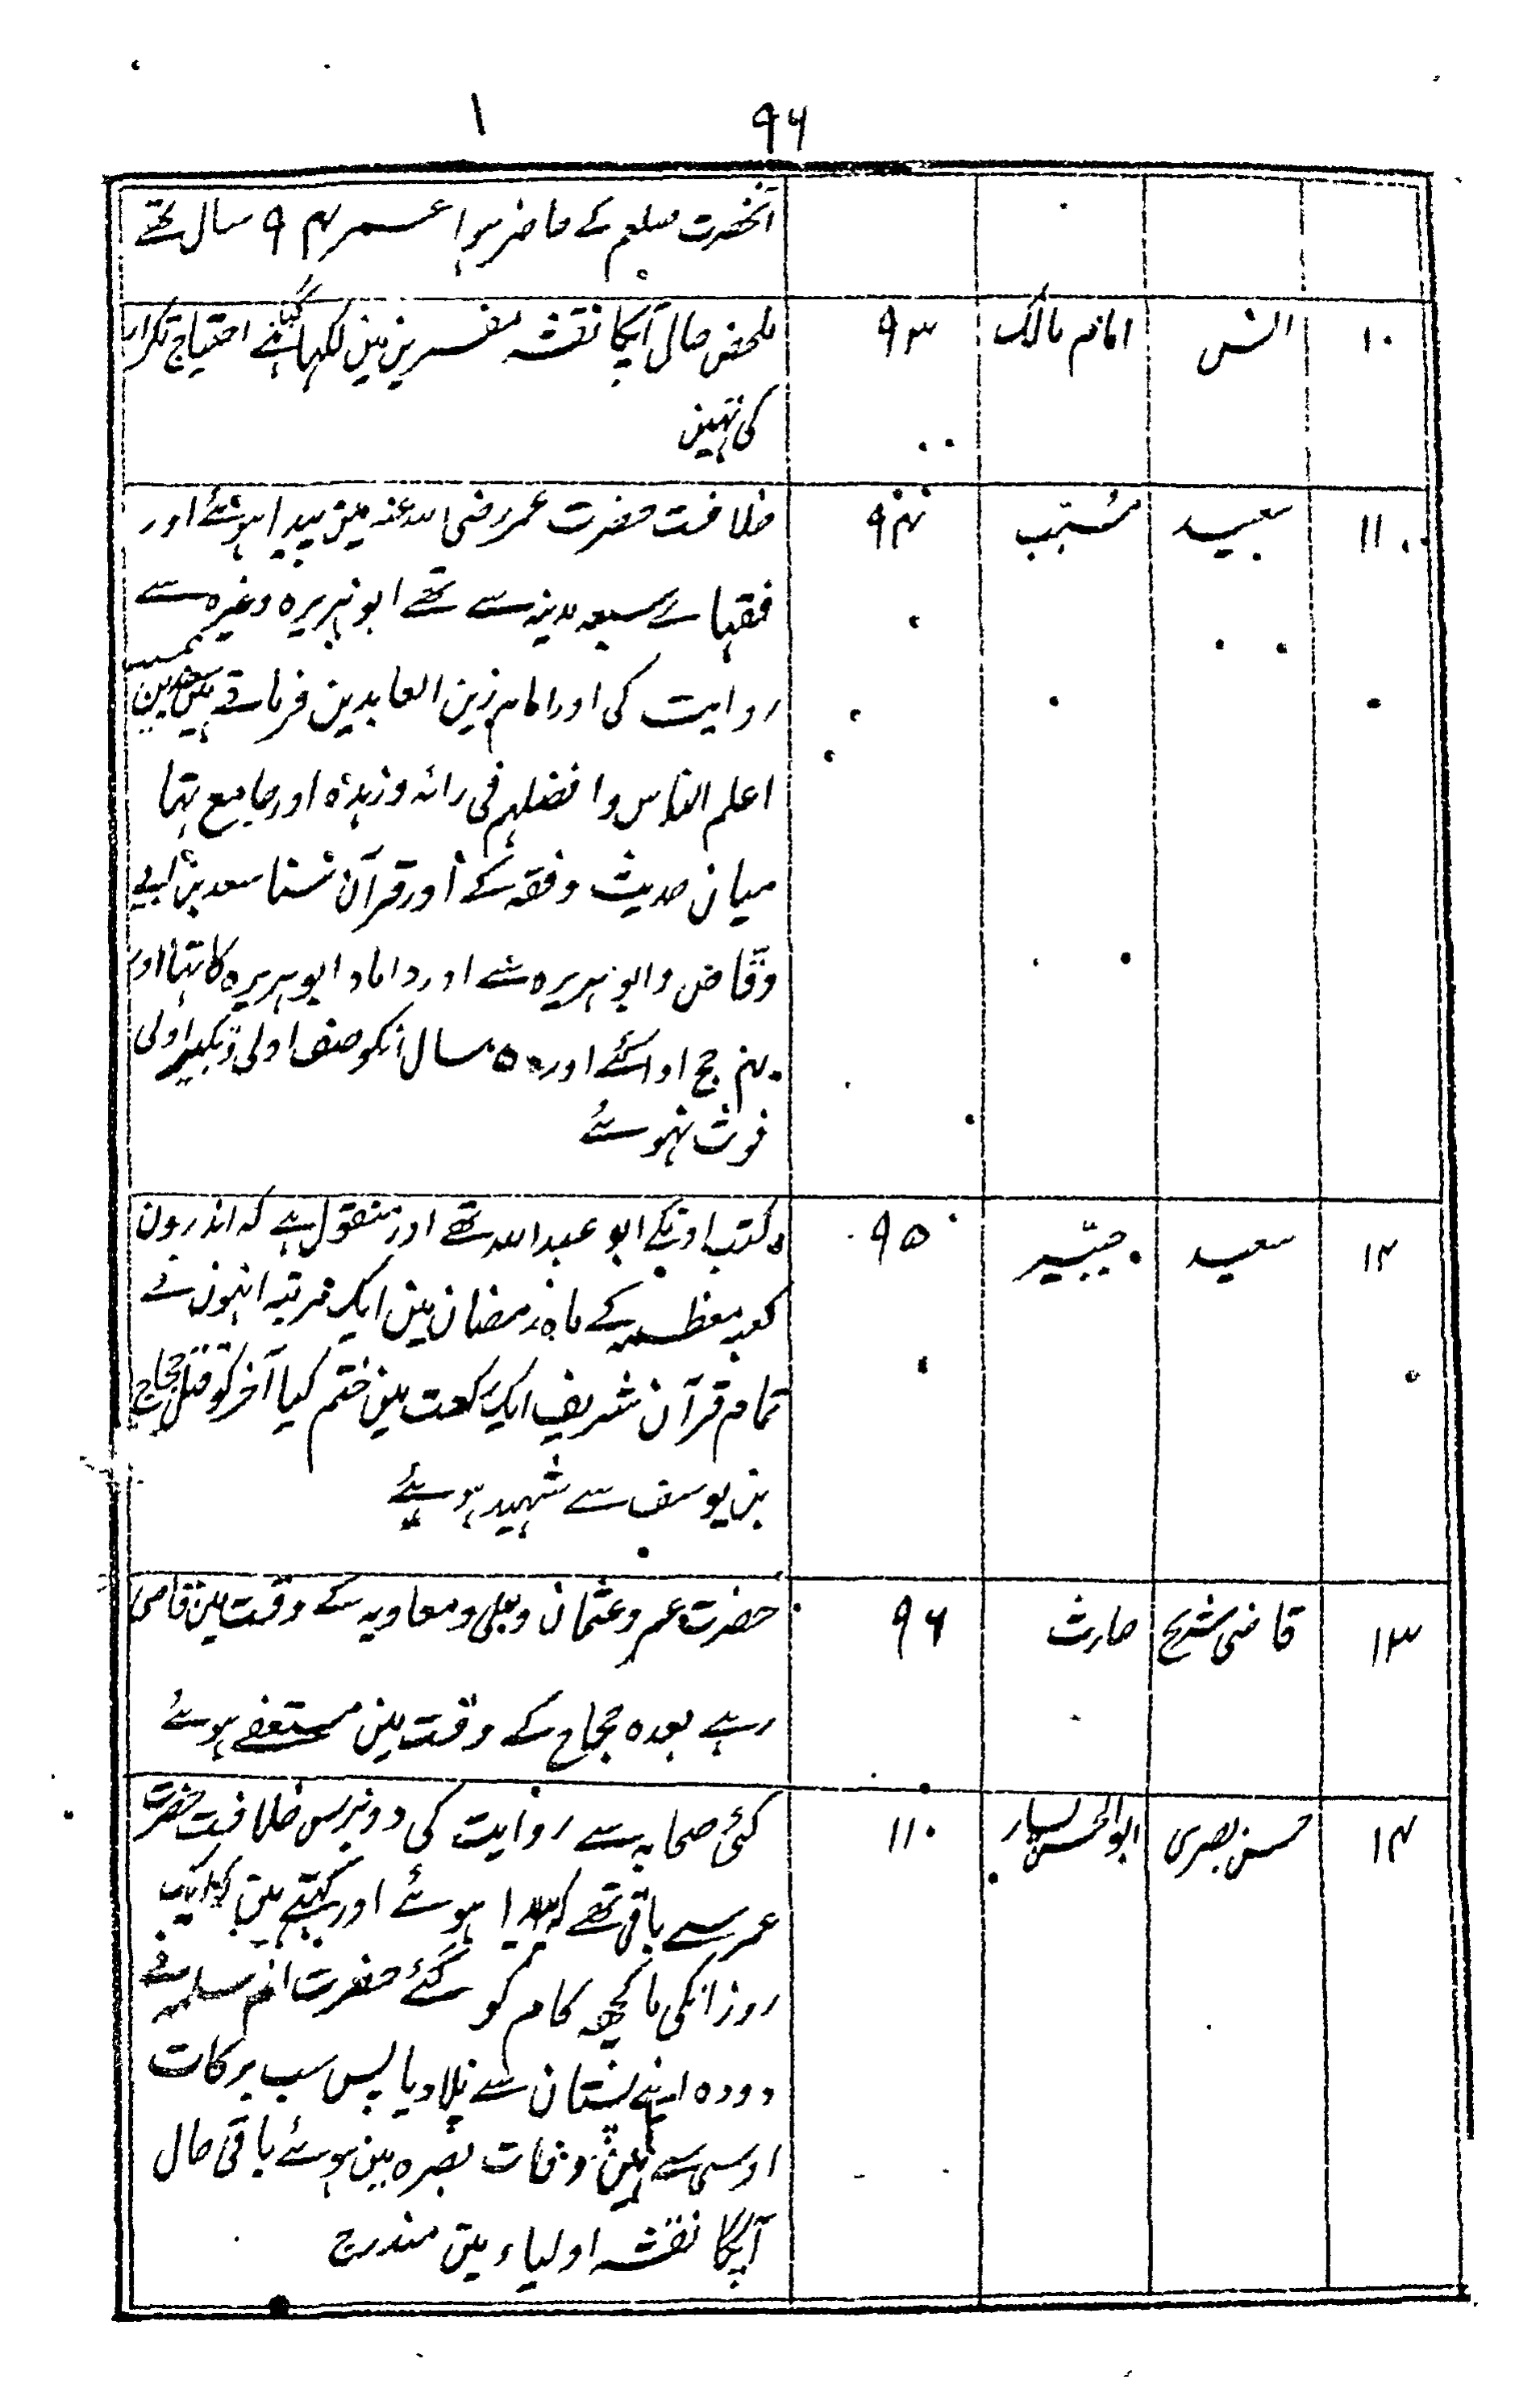 ۹۶
آنحضرت صلعم کے حاضر ہوا عمر ۹۴ سال تھے
۱۰ انس امام مالک ۹۳ ملخص حال آپکا نقشہ مفسرین مین لکہا گیا ہے احتیاج تکرار
کی نہین
۱۱ سعید مسیب ۹۴ خلافت حضرت عمر رضی اللہ عنہ مین پیدا ہوئے اور
فقہائے سبعہ مدینہ سے تھے ابو ہریرہ وغیرہ سے
روایت کی اور امام زین العابدین فرماتے ہین سعید بن مسیب
اعلم الناس وافضلہم فی رائہ وزہدہ اور جامع تہا
میان حدیث وفقہ کے اور قرآن سنا سعد بن ابی
وقاص وابو ہریرہ سے اور داماد ابو ہریرہ کا تہا اور
۴۰ حج ادا کئے اور ۵۰ سال انکو صف اولی و تکبیر اولی
فوت نہوئے
۱۲ سعید جبیر ۹۵ کتب اونکے ابو عبداللہ تھے اور منقول ہے کہ اندرون
کعبہ معظمہ کے ماہ رمضان مین ایک مرتبہ انہون نے
تمام قرآن شریف ایک رکعت مین ختم کیا آخر کو قتل حجاج
بن یوسف سے شہید ہوئے
۱۳ قاضی شریح حارث ۹۶ حضرت عمر وعثمان وعلی ومعاویہ کے وقت مین قاضی
رہے بعدہ حجاج کے وقت مین مستعفے ہوئے
۱۴ حسن بصری ابوالحسن یسار ۱۱۰ کئی صحابہ سے روایت کی دو برس خلافت حضرت
عمر سے باقی تھے کہ پیدا ہوئے اور کہتے ہین کہ ایک
روز انکی ما کچھ کام کو گئے حضرت ام سلمہ نے
دودہ اپنے پستان سے پلا دیا پس سب برکات
اوسی سے ہین وفات بصرہ مین ہوئے باقی حال
آپکا نقشہ اولیاء مین مندرج